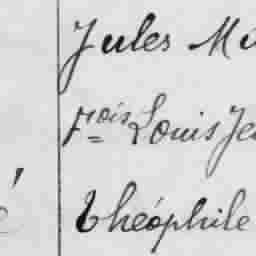 Jules Ma
F=ois Louis Je
Théophile